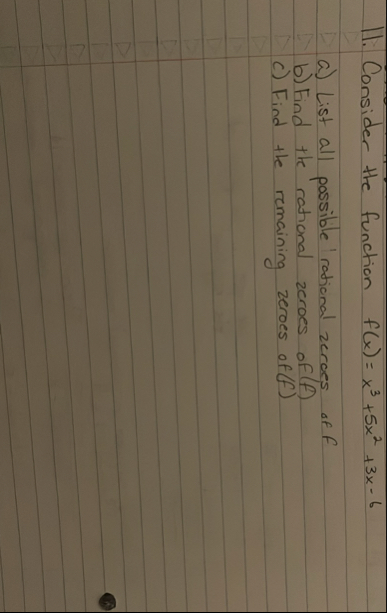 11. Consider the function f(x) = x³ + 5x² + 3x - 6
a) List all possible rational zeroes of f
b) Find the rational zeroes of (f)
c) Find the remaining zeroes of (f)